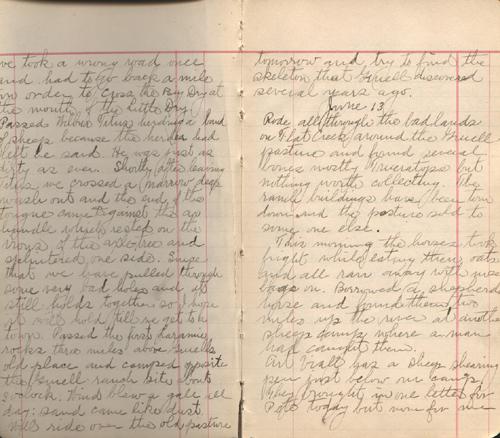 we took a wrong road once
and had to go back a mile
in order to cross the Big Dry at
the mouth of the Little Dry.
Passed Titus herding a band
of sheep because the herder had
left he said. He was just as
dirty as ever. Shortly after leaving
Titus we crossed a narrow deep
wash out and the end of the
tongue came against the
which rested on the
of the axle tree and
splintered one side. Since
that we have pulled through
some very bad holes and it
still holds together so I hope
it will hold till we get to
town. Passed the first Laramie
rocks three miles above
old place and camped opposite
the ranch site about
o'clock. Wind blew a gale all
day: sand came like dust.
Will ride over the old pasture
tomorrow and try to find the
skeleton that discovered
several years ago.
June 13
Rode all through the bad lands
on Flat Creek, around the
pasture and found several
bones mostly Triceratops but
nothing worth collecting. The
ranch buildings have been torn
down and the pasture sold to
some one else.
This morning the horses took
fright while eating their oats
and all ran away with nose
bags on. Borrowed a shepherd's
horse and found them two
miles up the river at another
sheep camp where a man
had caught them.
Art has a sheep shearing
pen just below our camp.
They brought in one letter for
Pete today but none for me